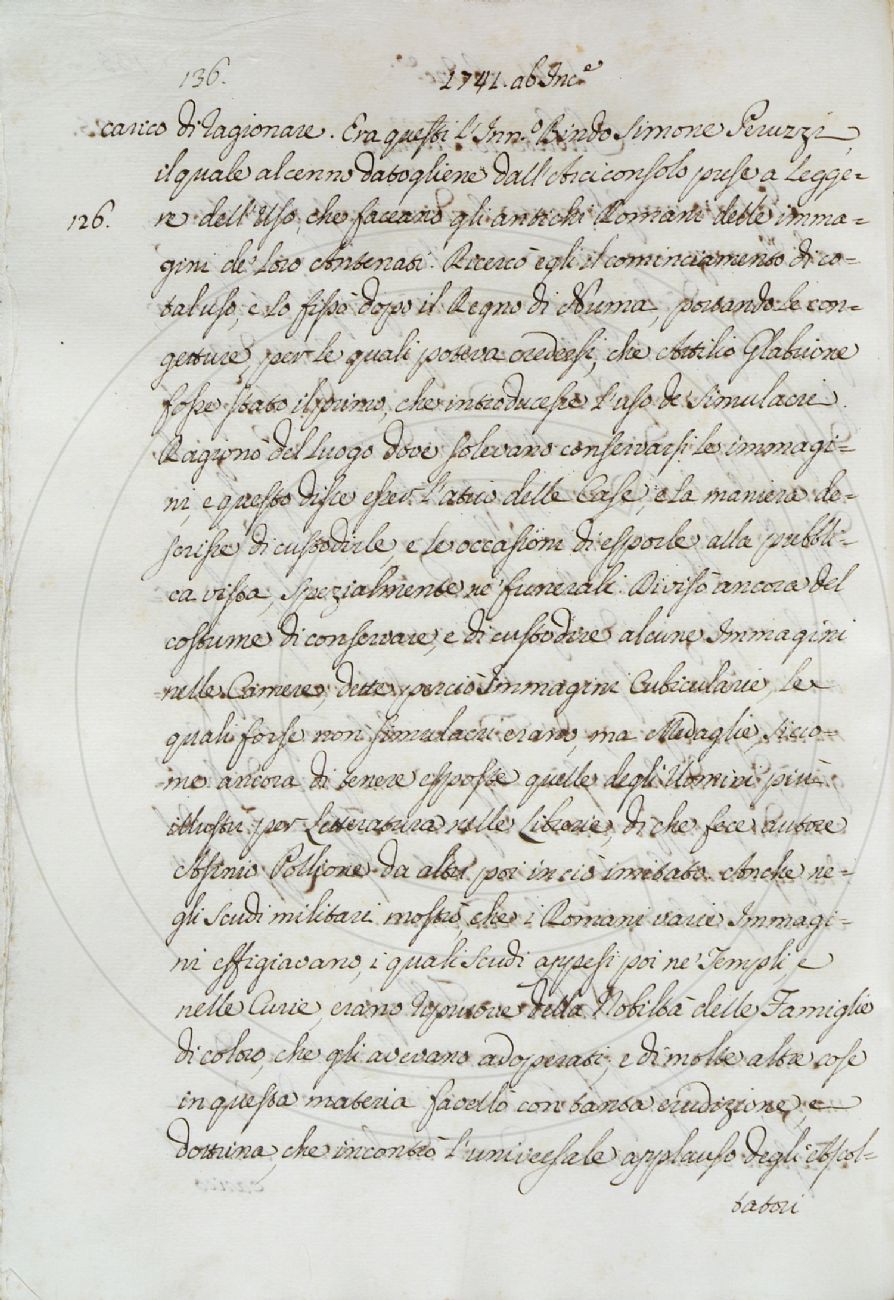 136.
1741. ab Inc.e
carico di ragionare. Era questi l'Inn.o Bindo Simone Peruzzi,
il quale al cenno datogliene dall'Arciconsolo prese a Legge-
126.
re dell'Uso, che faceano gli antichi Romani delle imma-
gini de' Loro Antenati. Ricercò egli il cominciamento di co-
tal uso, e lo fissò dopo il Regno di Numa, portando le con-
getture, per le quali poteva credersi, che Attilio Glabrione
fosse stato il primo, che introducesse l'uso de' Simulacri.
Ragionò del Luogo dove solevano conservarsi le immagi-
ni, e questo disse esser l'atrio delle Case, e la maniera de-
scrisse di custodirle, e le occasioni di esporle alla pubbli-
ca vista, spezialmente ne' funerali. Divisò ancora del
costume di conservare, e di custodire alcune Immagini
nelle Camere, dette perciò Immagini Cubicularie, le
quali forse non simulacri erano, ma Medaglie, sicco-
me ancora di tenere esposte quelle degli Uomini più
illustri per Letteratura nelle Librerie, di che fece autore
Asinio Pollione da altri poi in ciò imitato. Anche ne-
gli scudi militari mostrò che i Romani varie Immagi-
ni effigiavano, i quali scudi appesi poi ne' Templi, e
nelle Curie, erano riprove della Nobiltà delle Famiglie
di coloro, che gli avevano adoperati; e di molte altre cose
in questa materia favellò con tanta erudizione, e
dottrina, che incontrò l'universale applauso degli Ascol-
tatori